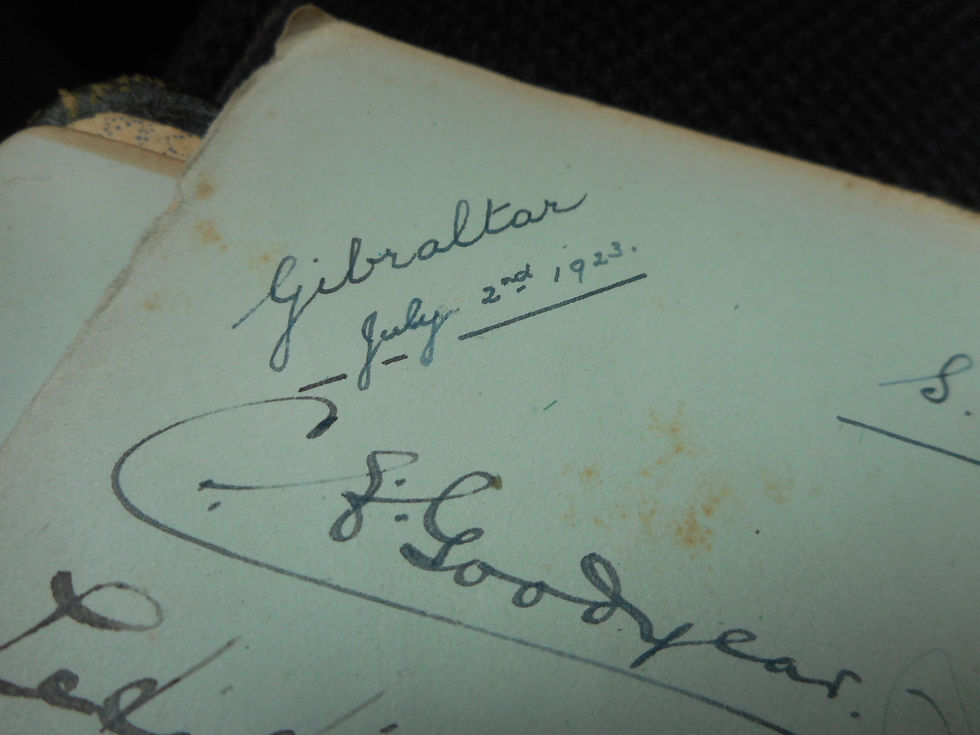 Gibraltar
July 2nd 1923.
S.
C. S. Goodyear.